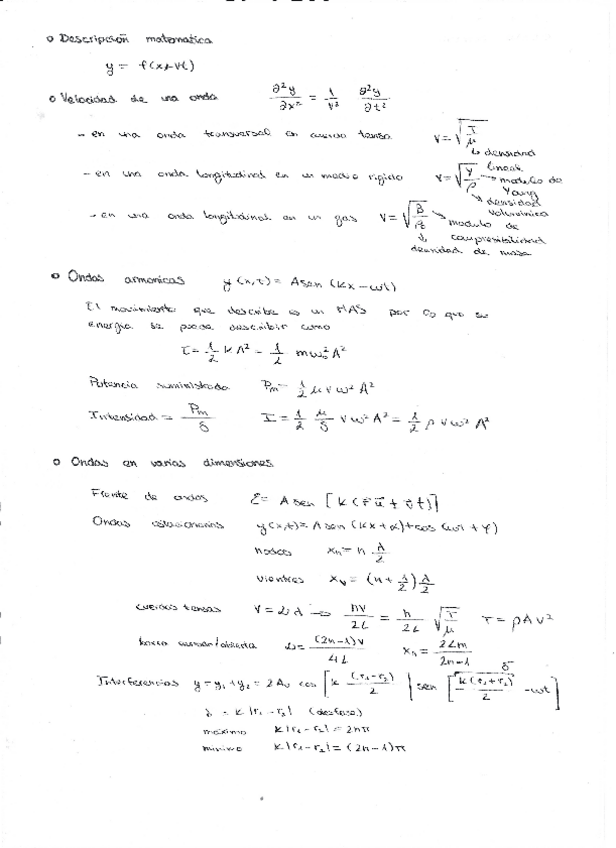 o Descripción matematica
y = f(x±vt)
o Velocidad de una onda ∂²y/∂x² = 1/v² ∂²y/∂t²
- en una onda transversal en cuerda tensa v = √(T/μ)
↳ densidad lineal
- en una onda longitudinal en un medio rigido v = √(Y/ρ) → modulo de Young
↘ densidad volumínica
- en una onda longitudinal en un gas v = √(B/ρ) → modulo de compresibilidad
↓ densidad de masa
o Ondas armonicas y(x,t) = A sen(kx - ωt)
El movimiento que describe es un MAS por lo que su
energia se puede describir como
E = 1/2 k A² = 1/2 m ω₀² A²
Potencia suministrada Pm = 1/2 μ v ω² A²
Intensidad = Pm/S I = 1/2 μ/S v ω² A² = 1/2 ρ v ω² A²
o Ondas en varias dimensiones
Frente de ondas = A sen [k(r̄ū ± v̄t)]
Ondas estacionarias y(x,t) = A sen(kx+α)+cos(ωt+φ)
nodos xn = n λ/2
vientres xv = (n + 1/2) λ/2
cuerdas tensas nv/2L = n/2L √(T/μ) T = ρAv²
(2n-1)v/4L xn = 2Lm/2n-1
Interferencias y = y₁+y₂ = 2A₀ cos [k (r₁-r₂)/2] sen [k(r₁+r₂)/2 - ωt]
δ = k|r₁-r₂| (desfase)
maximo k|r₁-r₂| = 2nπ
minimo k|r₁-r₂| = (2n-1)π